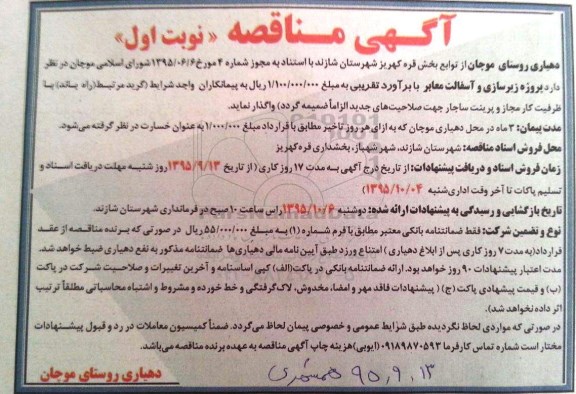 آگهی مناقصه « نوبت اول»
دهیاری روستای موجان از توابع بخش قره کهریز شهرستان شازند با استناد به مجوز شماره ۴ مورخ ۱۳۹۵/۰۶/۶ شورای اسلامی موجان در نظر
دارد پروژه زیرسازی و آسفالت معابر با برآورد تقریبی به مبلغ ۱/۱۰۰/۰۰۰/۰۰۰ ریال به پیمانکاران واجد شرایط (گرید مرتبط(راه باند) با
ظرفیت کار مجاز و پرینت ساجار جهت صلاحیت‌های جدید الزاماً ضمیمه گردد) واگذار نماید.
مدت پیمان: ۳ ماه در محل دهیاری موجان که به ازای هر روز تاخیر مطابق با قرارداد مبلغ ۱/۰۰۰/۰۰۰ به عنوان خسارت در نظر گرفته می‌شود.
محل فروش اسناد مناقصه: شهرستان شازند، شهر شهباز، بخشداری قره‌کهریز
زمان فروش اسناد و دریافت پیشنهادات: از تاریخ درج آگهی به مدت ۱۷ روز کاری ( از تاریخ ۱۳۹۵/۹/۱۳ روز شنبه مهلت دریافت اسناد و
تسلیم پاکات تا آخر وقت اداری شنبه ۱۳۹۵/۱۰/۰۴)
تاریخ بازگشایی و رسیدگی به پیشنهادات ارائه شده: دوشنبه ۱۳۹۵/۱۰/۶ راس ساعت ۱۰ صبح در فرمانداری شهرستان شازند.
نوع و تضمین شرکت: فقط ضمانتنامه بانکی معتبر مطابق با فرم شماره (۱) به مبلغ ۵۵/۰۰۰/۰۰۰ ریال در صورتی که برنده مناقصه از عقد
قرارداد(به مدت ۷ روز کاری پس از ابلاغ دهیاری ) امتناع ورزد طبق آیین نامه مالی دهیاری‌ها ضمانتنامه مذکور به نفع دهیاری ضبط خواهد شد.
مدت اعتبار پیشنهادات ۹۰ روز خواهد بود. ارائه ضمانتنامه بانکی در پاکت(الف) کپی اساسنامه و آخرین تغییرات و صلاحیت شرکت در پاکت
(ب) و قیمت پیشهادی پاکت (ج) ( پیشنهادات فاقد مهر و امضا، مخدوش، لاک‌گرفتگی و خط خورده و مشروط و اشتباه محاسباتی مطلقاً ترتیب
اثر داده نخواهد شد).
در صورتی که مواردی لحاظ نگردیده طبق شرایط عمومی و خصوصی پیمان لحاظ می‌گردد. ضمناً کمیسیون معاملات در رد و قبول پیشنهادات
مختار است شماره تماس کارفرما ۰۹۱۸۹۸۷۰۵۹۳ (ایوبی)هزینه چاپ آگهی مناقصه به عهده برنده مناقصه می‌باشد.
دهیاری روستای موجان
۹۵,۹,۱۳